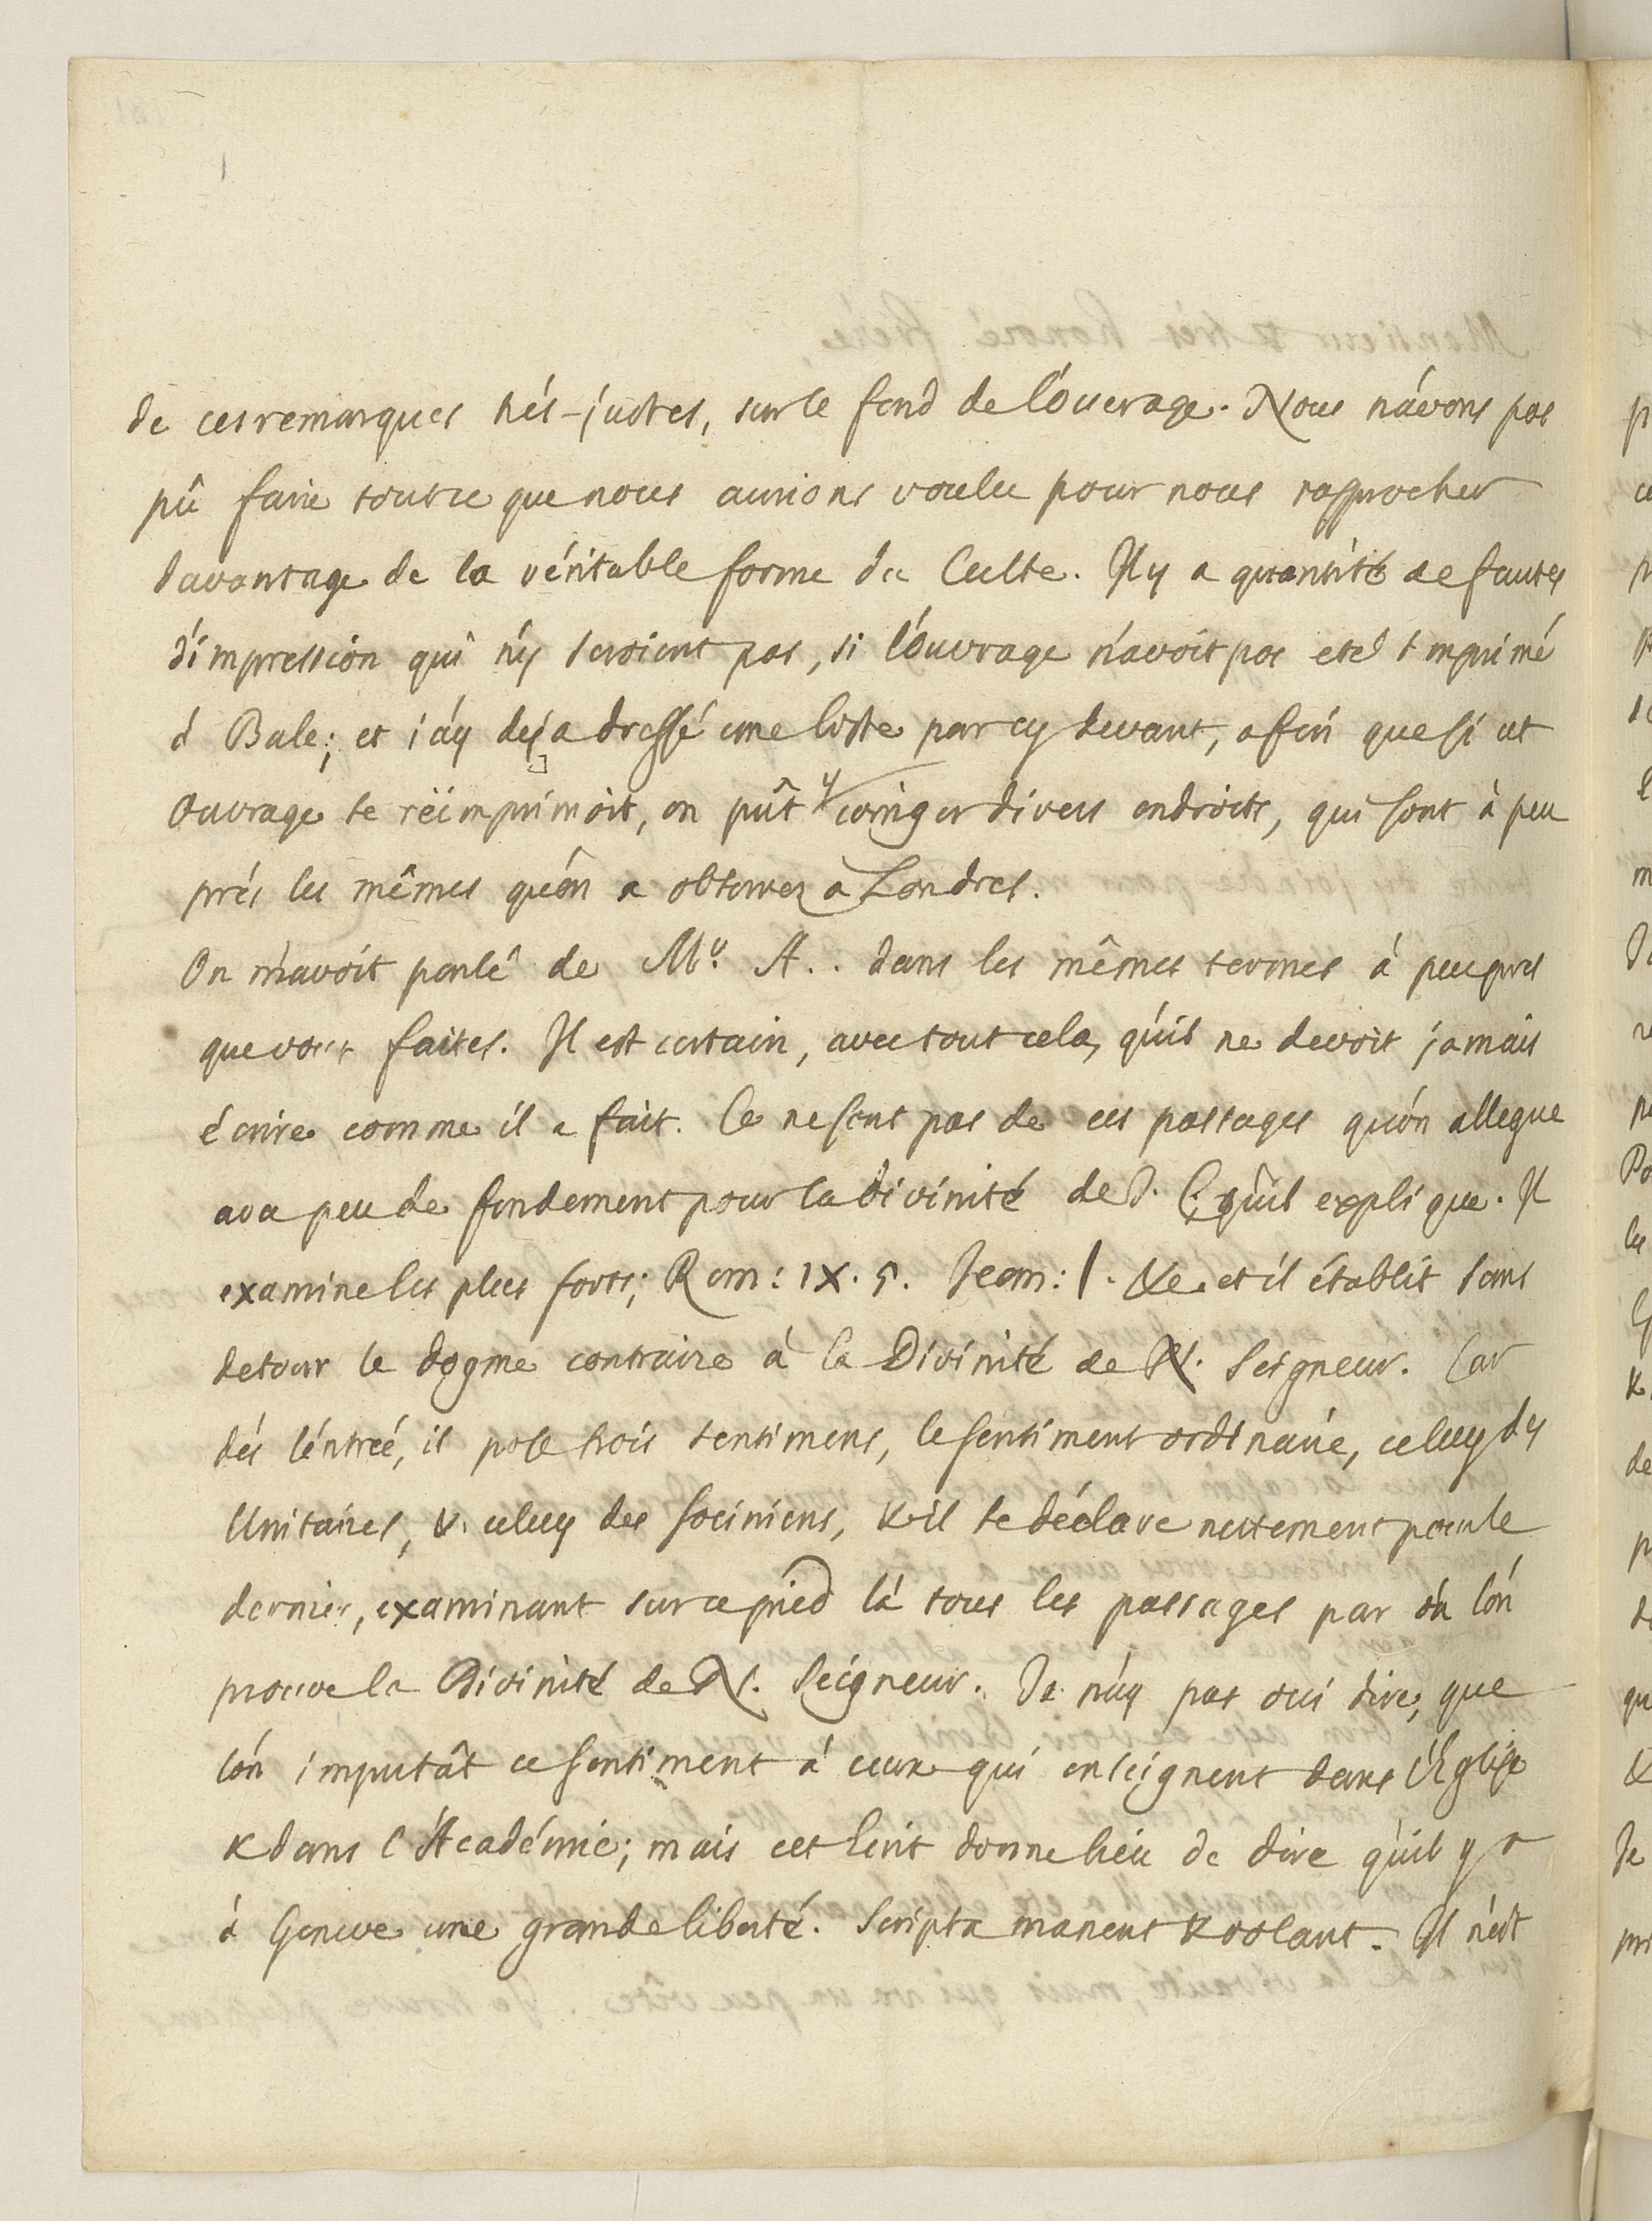 de ces remarques trés-justes, sur le fond de l'ouvrage. Nous n'avons pas
pû faire tout ce que nous aurions voulu pour nous rapprocher
davantage de la véritable forme du Culte. Il y a quantité de fautes
d'impression qui n'y seroient pas, si l'ouvrage n'avoit pas eté imprimé
à Bale; et j'ay deja dressé une liste par cy devant, afin que si cet
Ouvrage se réimprimoit, on pût y corriger divers endroits, qui sont à peu
prés les mêmes qu'on a observez à Londres.
On m'avoit parlé de Mr. A.. dans les mêmes termes à peu pres
que vous faites. Il est certain, avec tout cela, qu'il ne devoit jamais
écrire comme il a fait. Ce ne sont pas de ces passages qu'on allegue
avec peu de fondement pour la divinité de J. C. qu'il explique. Il
examine les plus forts; Rom: IX. 5. Jean: I. &c. et il établit sans
detour le dogme contraire à la Divinité de N. Seigneur. Car
dés l'entreé, il pose trois sentimens, le sentiment ordinaire, celuy des
Unitaires, & celuy des Sociniens, & il se déclare nettement pour le
dernier, examinant sur ce pied là tous les passages par où l'on
prouve la Divinité de N. Seigneur. Je n'ay pas oui dire, que
l'on imputât ce sentiment à ceux qui enseignent dans l'Eglise
& dans l'Académie; mais cet Ecrit donne lieu de dire qu'il y a
à Geneve une grande liberté. Scripta manent & volant. Il n'est